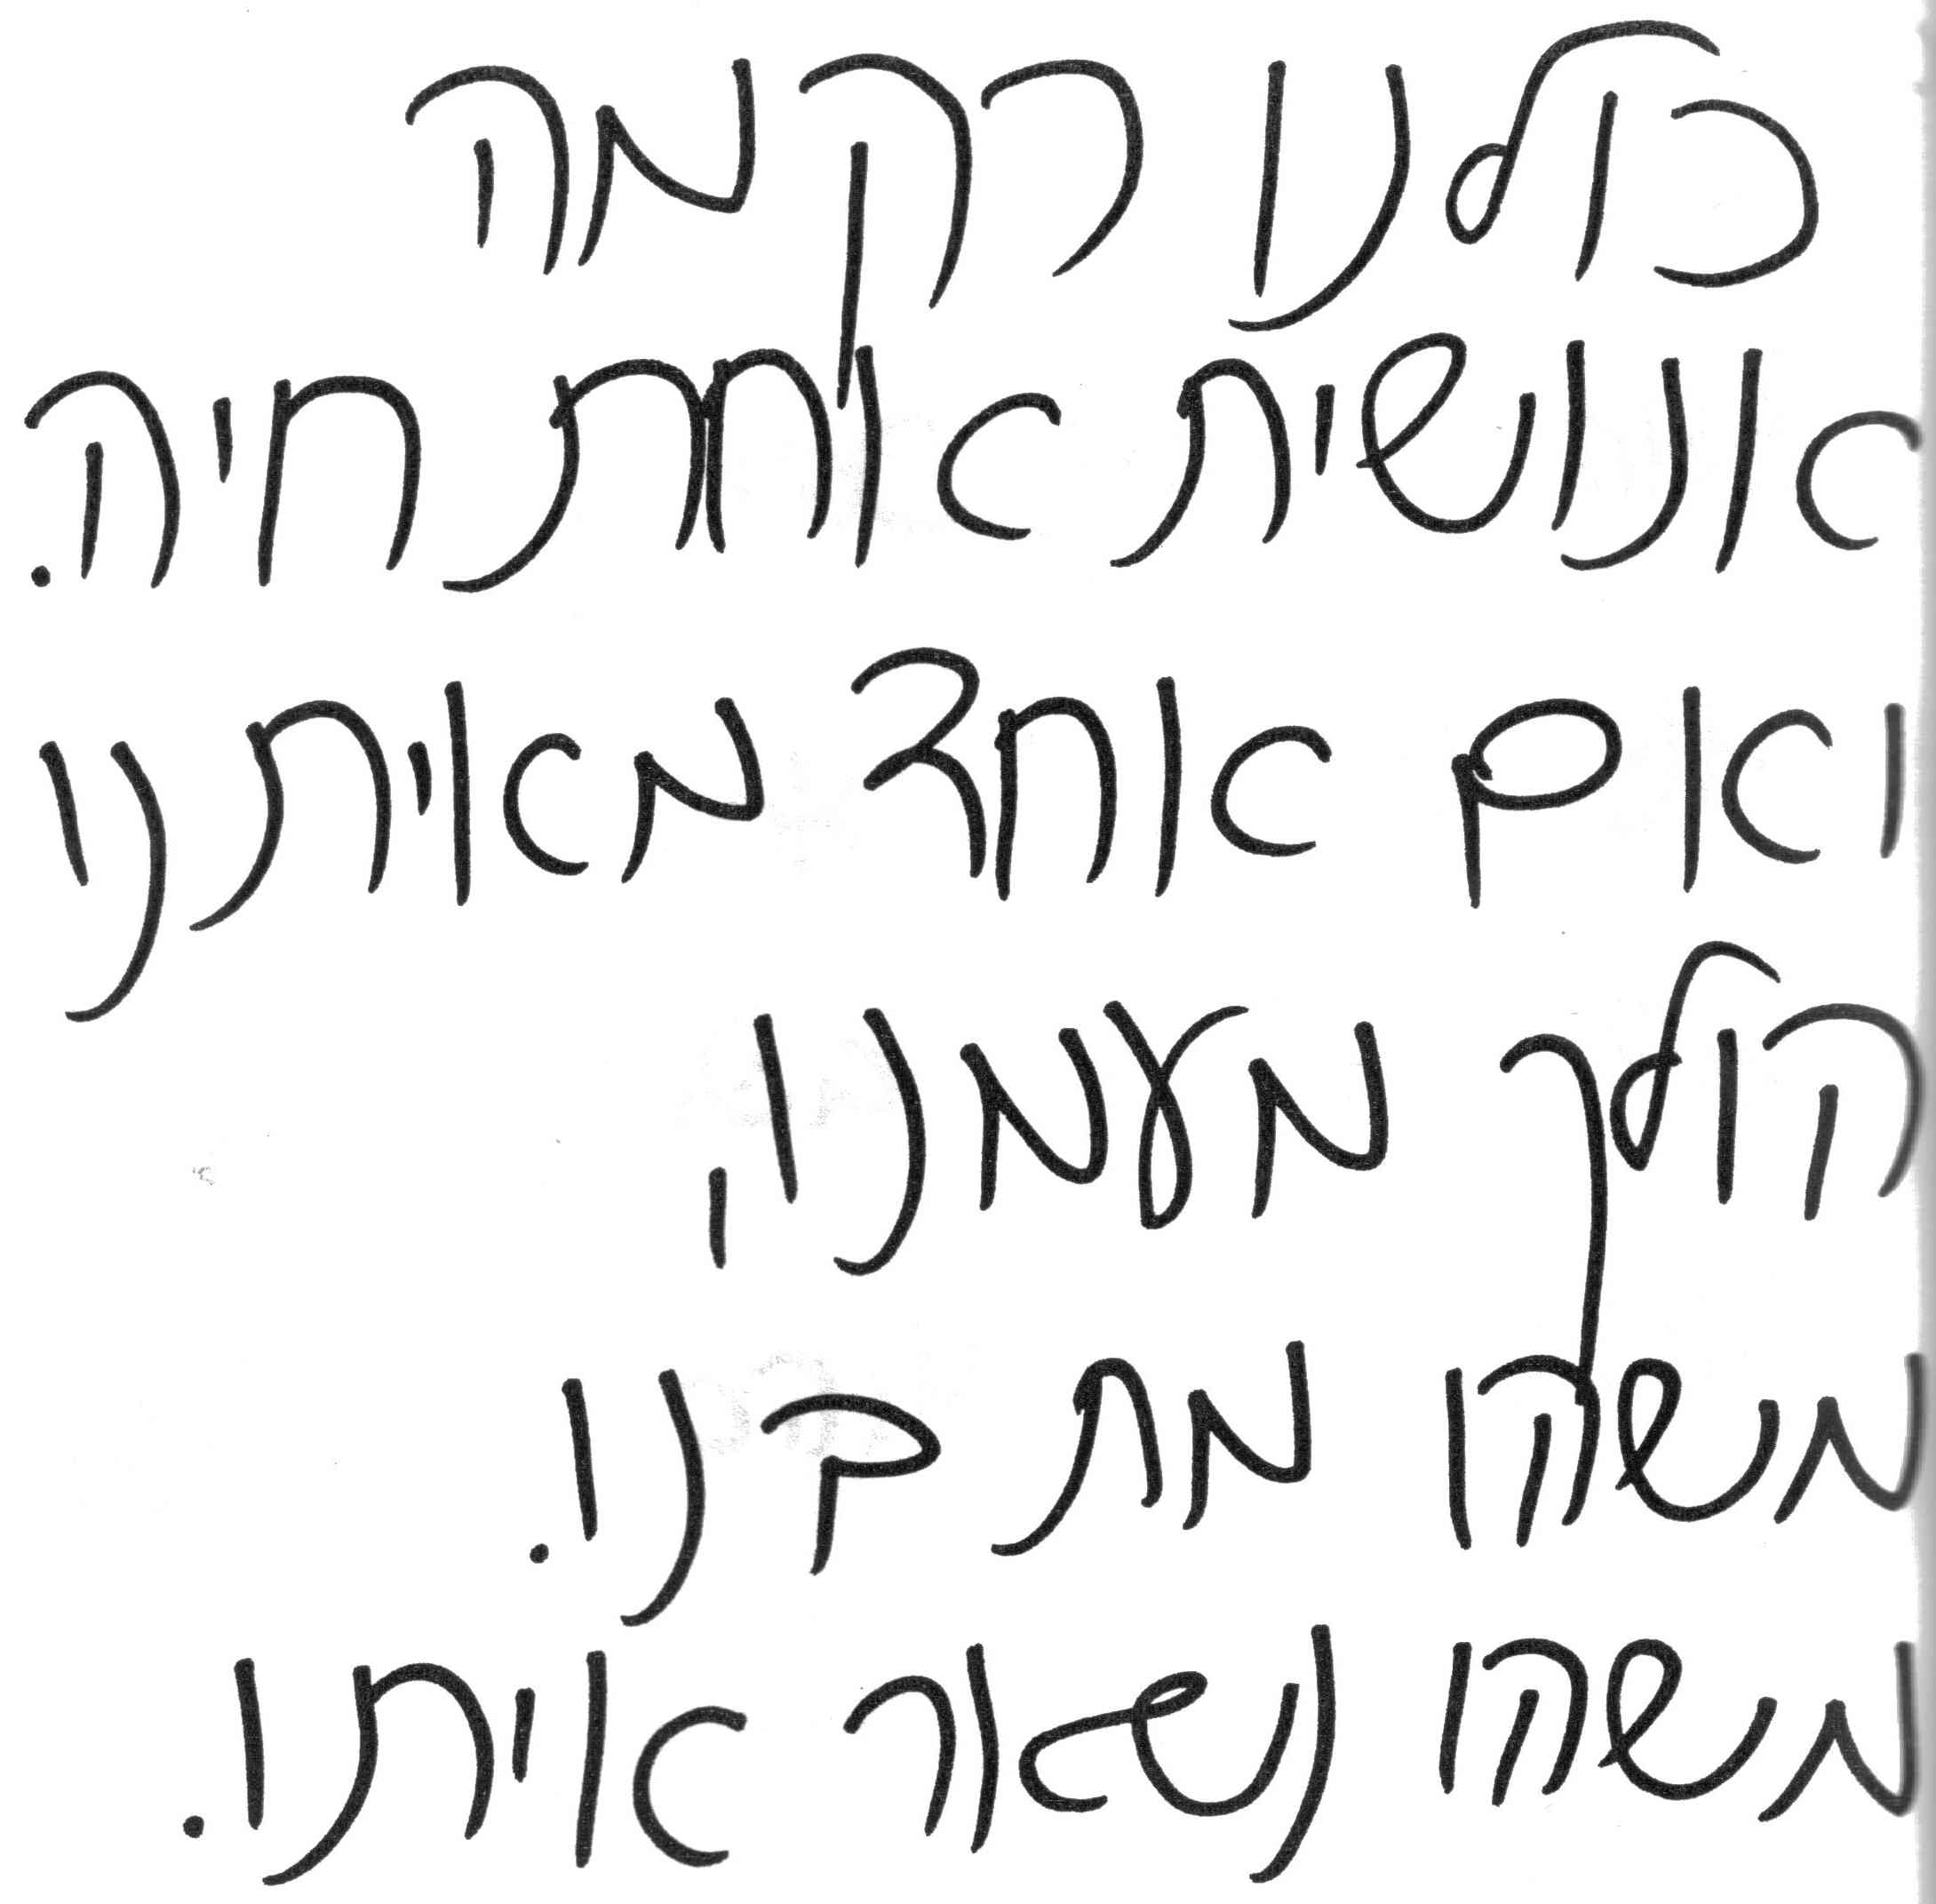 כולנו רקמה
אנושית אחת חיה.
ואם אחד מאיתנו
הולך מעמנו,
משהו מת בנו.
משהו נשאר איתו.